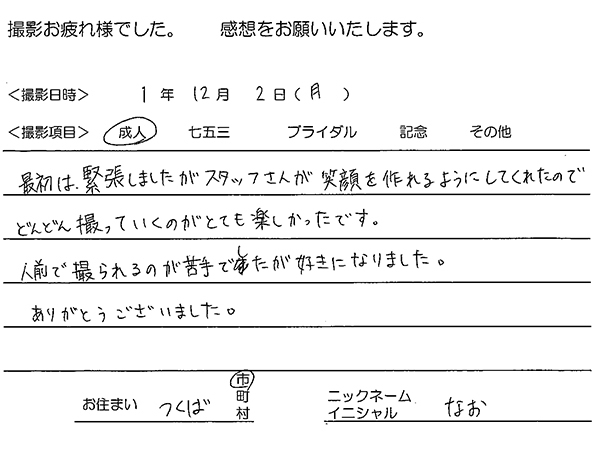 撮影お疲れ様でした。 感想をお願いいたします。
<撮影日時> 1年 12月 2日(月)
<撮影項目> 成人 七五三 ブライダル 記念 その他
最初は、緊張しましたがスタッフさんが笑顔を作れるようにしてくれたので
どんどん撮っていくのがとても楽しかったです。
人前で撮られるのが苦手でしたが好きになりました。
ありがとうございました。
お住まい つくば 市町村 ニックネーム イニシャル なお